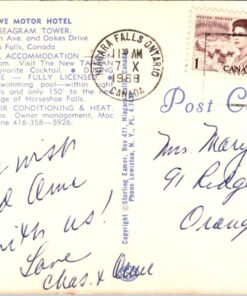 VE MOTOR HOTEL
SEAGRAM TOWER.
n Ave. and Oakes Drive
Falls, Canada
ACCOMMODATION —
om. Visit The New TA
Favorite Cocktail. • DI
E — FULLY LICENSE
wimming pool—within
ds and only 150' to the
ge of Horseshoe Falls.
AIR CONDITIONING & HEAT.
s. Owner management, Mac
Phone 416-358-5926.
NIAGARA FALLS ONTARIO
11 AM
7 X
1968
CANADA
POSTES POSTAGE
1
CANAD
Post C
©Copyright Sterling Esmer, Box 471, Niagara
Phone Lewiston, N. Y. PL 4-
wish
d Ome
with us!
Love
Chas. & Ome
M
91 Ridg
Orang